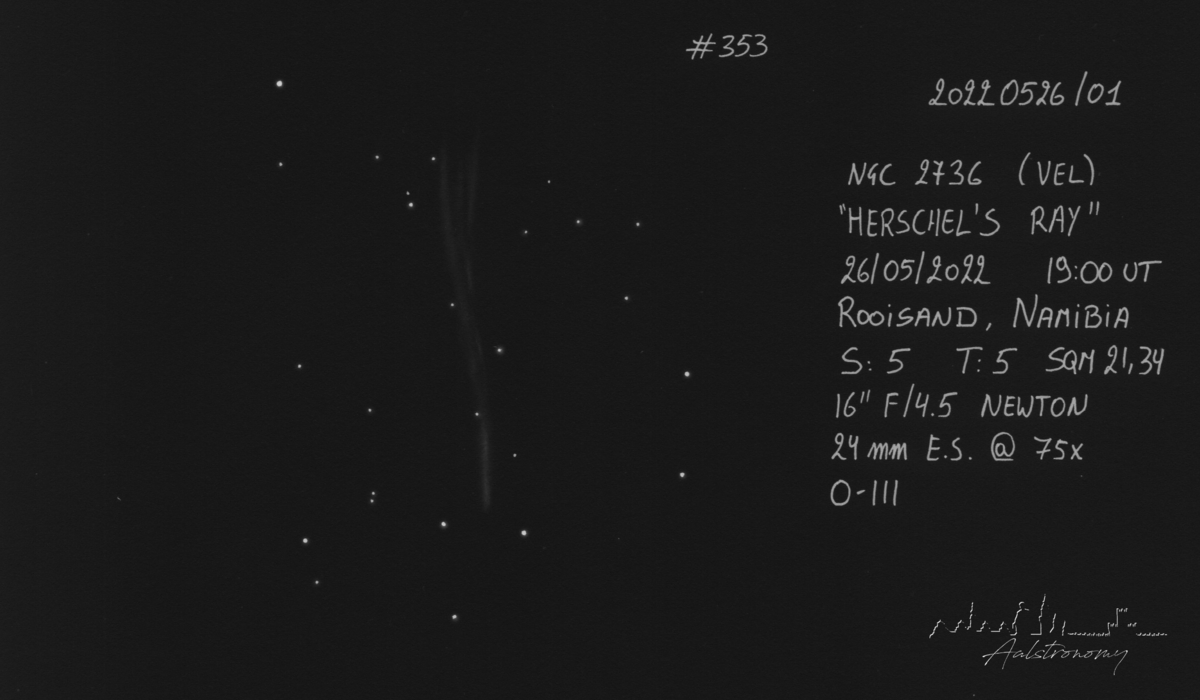 #353
20220526/01
NGC 2736 (VEL)
"HERSCHEL'S RAY"
26/05/2022 19:00 UT
ROOiSAND, NAMiBiA
S: 5 T: 5 SQM 21,34
16" F/4.5 NEWTON
24 mm E.S. @ 75x
O-III
Aalstronomy